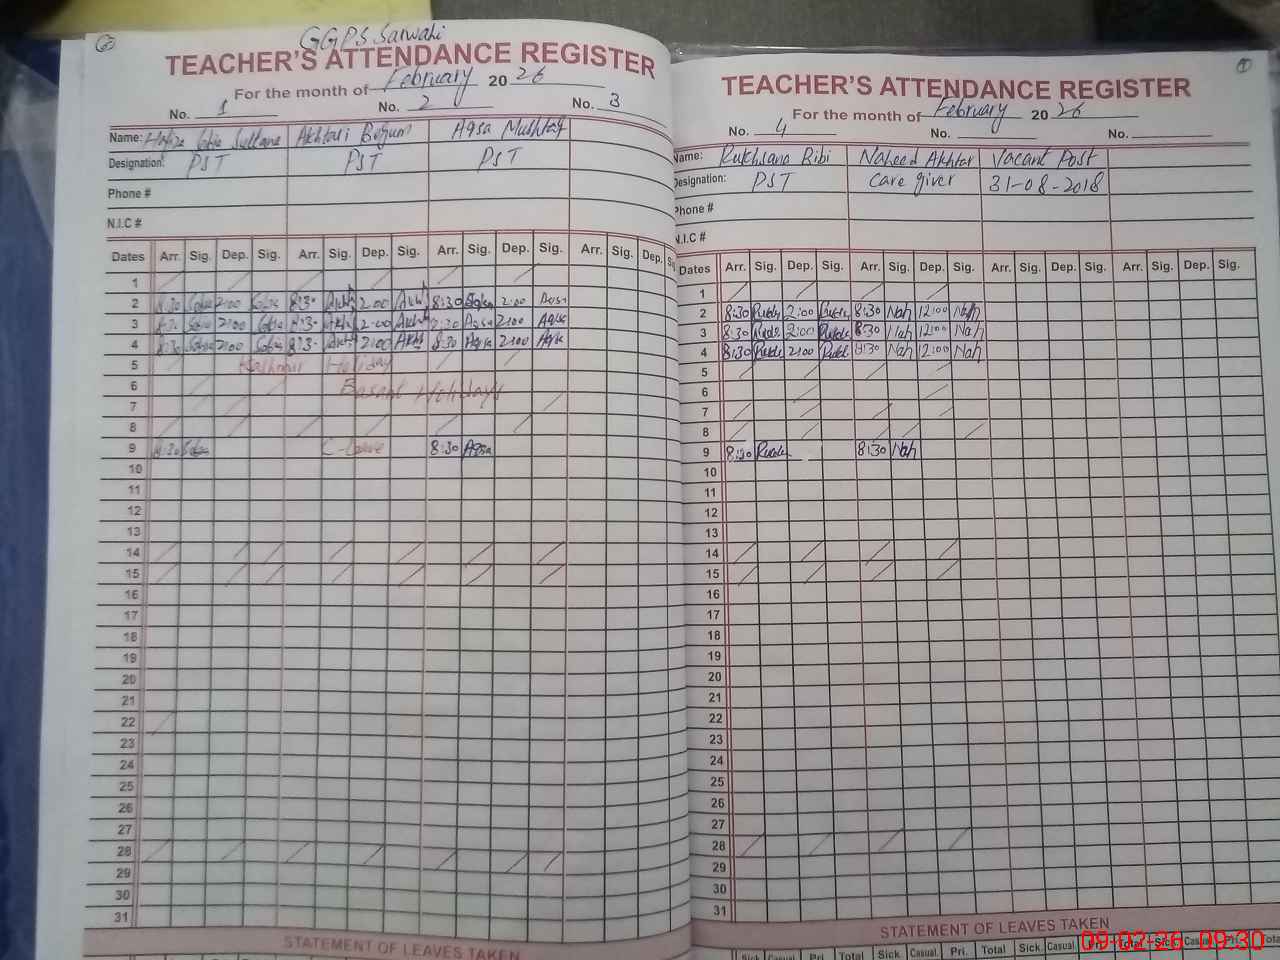 GGPS Sarwahi
TEACHER'S ATTENDANCE REGISTER
For the month of February 20 26
No. 1 No. 2 No. 3
Name: Sultana Akhtari Begum Aqsa Mushtaq
Designation: PST PST PST
Phone #
N.I.C #
Dates Arr. Sig. Dep. Sig. Arr. Sig. Dep. Sig. Arr. Sig. Dep. Sig. Arr. Sig. Dep.
1
2 8:30 2:00 8:30 2:00 8:30 Aqsa 2:00 Aqsa
3 8:30 2:00 8:30 2:00 Aqsa 2:00 Aqsa
4 8:30 2:00 8:30 2:00 8:30 Aqsa 2:00 Aqsa
5 Kashmir Holiday
6 Basant Holidays
7
8
9 8:30 C-Leave 8:30 Aqsa
10
11
12
13
14
15
16
17
18
19
20
21
22
23
24
25
26
27
28
29
30
31
STATEMENT OF LEAVES TAKEN
TEACHER'S ATTENDANCE REGISTER
For the month of February 20 26
No. 4 No. No.
Name: Rukhsana Bibi Naheed Akhtar Vacant Post
Designation: PST Care giver 31-08-2018
Phone #
N.I.C #
Dates Arr. Sig. Dep. Sig. Arr. Sig. Dep. Sig. Arr. Sig. Dep. Sig. Arr. Sig. Dep. Sig.
1
2 8:30 2:00 8:30 Nah 12:00 Nah
3 8:30 2:00 8:30 Nah 12:00 Nah
4 8:30 2:00 8:30 Nah 12:00 Nah
5
6
7
8
9 8:30 8:30 Nah
10
11
12
13
14
15
16
17
18
19
20
21
22
23
24
25
26
27
28
29
30
31
STATEMENT OF LEAVES TAKEN
Sick Casual Pri. Total Sick Casual. Pri. Total Sick. Casual. Total Sick Casual Pri. Total
09-02-26 09:30